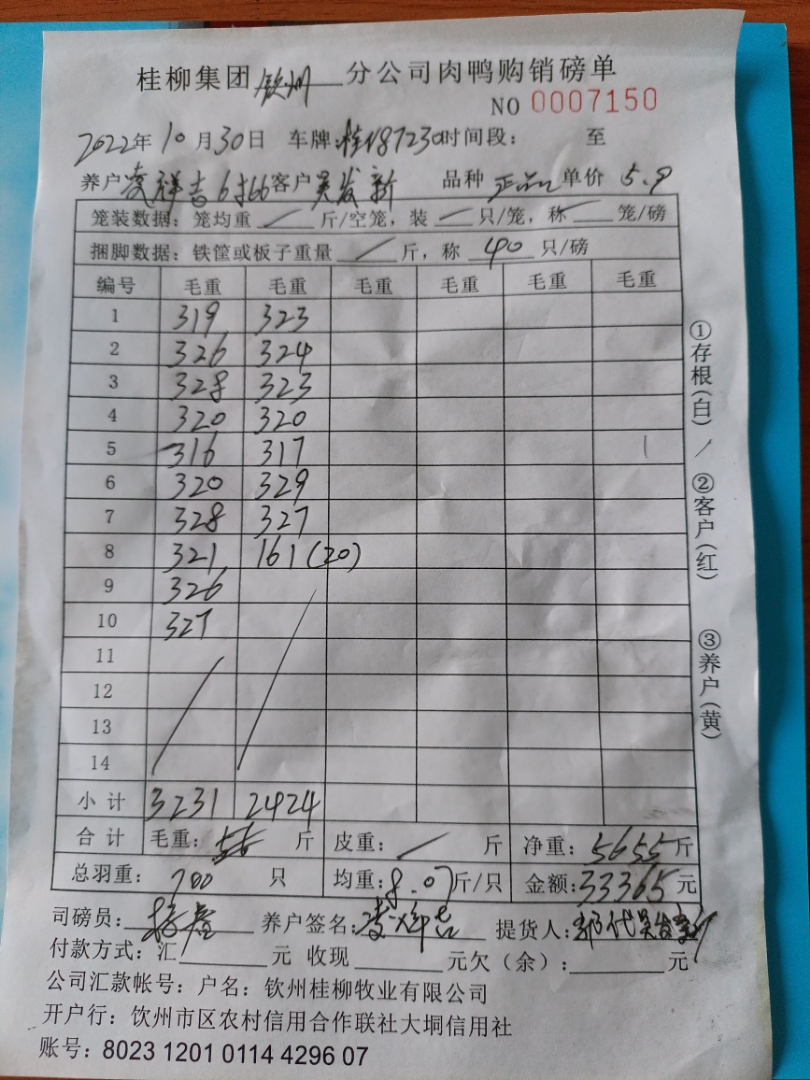 桂柳集团钦州分公司肉鸭购销磅单
NO 0007150
2022年10月30日 车牌:桂 87230时间段: 至
养户凌祥吉 客户吴发新 品种正品 单价 5.9
笼装数据:笼均重 / 斤/空笼,装 / 只/笼,称 / 笼/磅
捆脚数据:铁筐或板子重量 / 斤,称 40 只/磅
编号 毛重 毛重 毛重 毛重 毛重 毛重
1 319 323
2 326 324
3 328 323
4 320 320
5 316 317
6 320 329
7 328 327
8 321 161(20)
9 326
10 327
11
12
13
14
小计 3231 2424
合计 毛重: 斤 皮重: / 斤 净重: 5655斤
总羽重: 700 只 均重:8.07斤/只 金额:33365元
司磅员: 养户签名:凌祥吉 提货人: 代吴发新
付款方式:汇 元 收现 元欠(余): 元
公司汇款帐号:户名:钦州桂柳牧业有限公司
开户行:饮州市区农村信用合作联社大垌信用社
账号:8023 1201 0114 4296 07
①存根(白) ②客户(红) ③养户(黄)